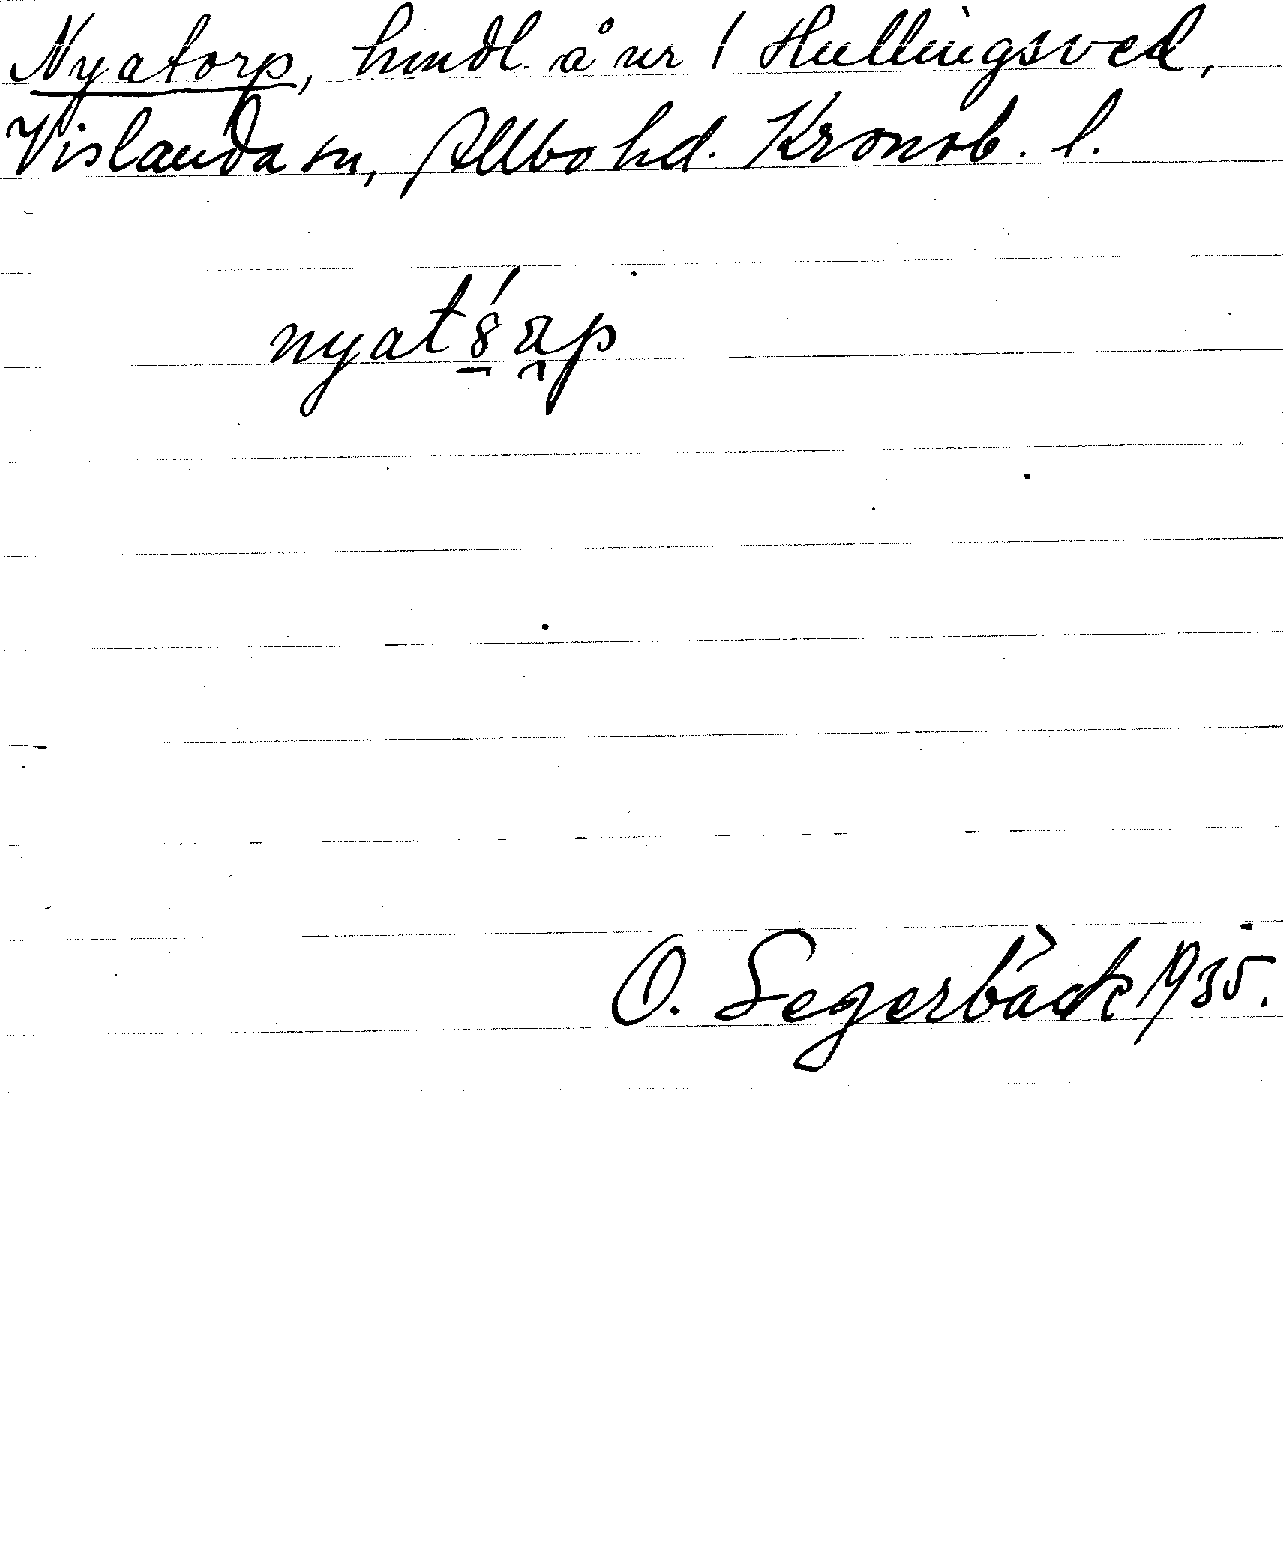 Nyatorp, hmdl. å nr 1 Hullingsved,
Vislanda sn, Allbo hd. Kronob. l.
O. Segerbäck 1935.